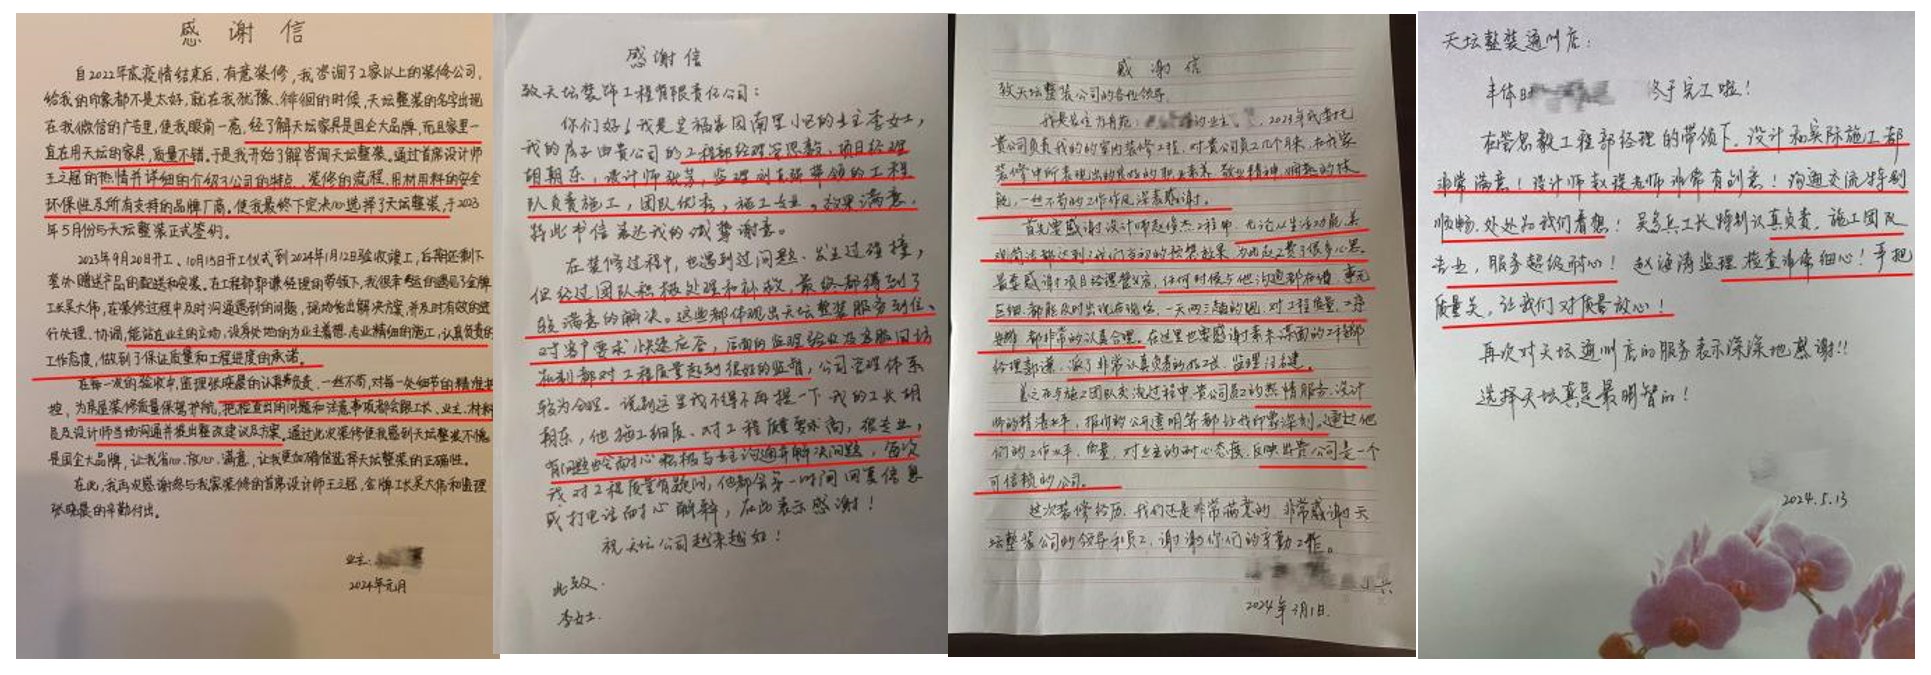 感谢信
自2022年底疫情结束后，有意装修，我咨询了2家以上的装修公司，
给我的印象都不是太好，就在我犹豫、徘徊的时候，天坛整装的名字出现
在我微信的广告里，使我眼前一亮，经了解天坛家具是国企大品牌，而且家里一
直在用天坛的家具，质量不错。于是我开始了解咨询天坛整装。通过首席设计师
王立冠的热情并详细的介绍了公司的特点、装修的流程、用材用料的安全
环保性及所有支持的品牌厂商。使我最终下定决心选择了天坛整装，于2023
年5月份与天坛整装正式签约。
2023年9月20日开工、10月15日开工仪式到2024年1月12日验收竣工，后期还剩下
套外赠送产品的配送和安装。在工程部郭谦经理的带领下，我很幸运的遇见了金牌
工长吴大伟，在装修过程中及时沟通遇到的问题，现场给出解决方案，并及时有效的进
行处理、协调，能站在业主的立场，设身处地的为业主着想，志业精细的施工，认真负责的
工作态度，做到了保证质量和工程进度的承诺。
在每一次的验收中，监理张晓晨的认真负责，一丝不苟，对每一处细节的精准把
控，为房屋装修质量保驾护航。把检查出的问题和注意事项都会跟工长、业主、材料
员及设计师当场沟通并提出整改建议及方案。通过此次装修使我感到天坛整装不愧
是国企大品牌，让我省心、放心、满意，让我更加确信选择天坛整装的正确性。
在此，我再次感谢参与我家装修的首席设计师王立冠，金牌工长吴大伟和监理
张晓晨的辛勤付出。
业主：
2024年元月
感谢信
致天坛装饰工程有限责任公司：
你们好！我是定福家园南里小区的业主李女士，
我的房子由贵公司的工程部经理管思毅，项目经理
胡朝东，设计师张芳，监理刘玉强带领的工程
队负责施工，团队优秀，施工专业，效果满意，
特此书信表达我的诚挚谢意。
在装修过程中，也遇到过问题、发生过碰撞，
但经过团队积极处理和补救，最终都得到了
较满意的解决。这些都体现出天坛整装服务到位、
对客户要求快速应答，后面的监理验收及客服回访
机制都对工程质量起到很好的监督，公司管理体系
较为合理。说到这里我不得不再提一下我的工长胡
朝东，他施工细致、对工程质量要求高，很专业，
有问题也会耐心积极与业主沟通并解决问题，每次
我对工程质量有疑问，他都会第一时间回复信息
或打电话耐心解释，在此表示感谢！
祝天坛公司越来越好！
此致
李女士
感谢信
致天坛整装公司的各位领导
我是居住方有苑：的业主、2023年我委托
贵公司负责我的室内装修工程，对贵公司员工几个月来，在我家
装修中所表现出的良好的职业素养 敬业精神 娴熟的技
能，一丝不苟的工作作风深表感谢。
首先要感谢设计师赵俊杰工程师，无论从生活功能，美
观简洁都达到了我们京初的预算效果，为此赵工费了很多心思
最要感谢项目经理管义客，任何时候与他沟通都在谱，事无
巨细，都能及时出现在现场，一天两三趟的跑，对工程质量，工序
安排，都非常的认真合理。在这里也要感谢素未谋面的工程部
经理郭谦，派了非常认真负责的好工长，监理汪名建。
总之在与施工团队交流过程中，贵公司员工的热情服务，设计
师的精湛水平，报价的公开透明等都让我印象深刻。通过他
们的工作水平，质量，对业主的耐心态度，反映出贵公司是一个
可信赖的公司。
这次装修经历，我们还是非常满意的，非常感谢天
坛整装公司的领导和员工，谢谢你们的辛勤工作。
2024年3月1日
天坛整装通州店：
丰体时 终于完工啦！
在管思毅工程部经理的带领下，设计和实际施工都
非常满意！设计师赵提老师非常有创意！沟通交流特别
顺畅，处处为我们着想！吴多兵工长特别认真负责，施工团队
专业，服务超级耐心！赵海涛监理检查非常细心！手把
质量关，让我们对质量放心！
再次对天坛通州店的服务表示深深地感谢！！
选择天坛真是最明智的！
2024.5.13